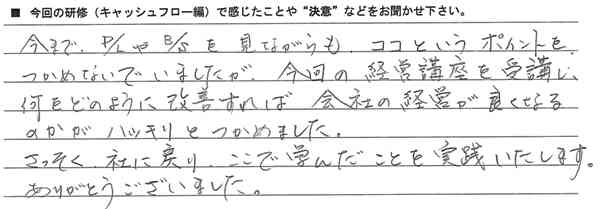 ■ 今回の研修（キャッシュフロー編）で感じたことや“決意”などをお聞かせ下さい。
今まで、P/LやB/Sを見ながらも、ココというポイントを
つかめないでいましたが、今回の経営講座を受講し、
何をどのように改善すれば会社の経営が良くなる
のかがハッキリとつかめました。
さっそく、社に戻り、ここで学んだことを実践いたします。
ありがとうございました。